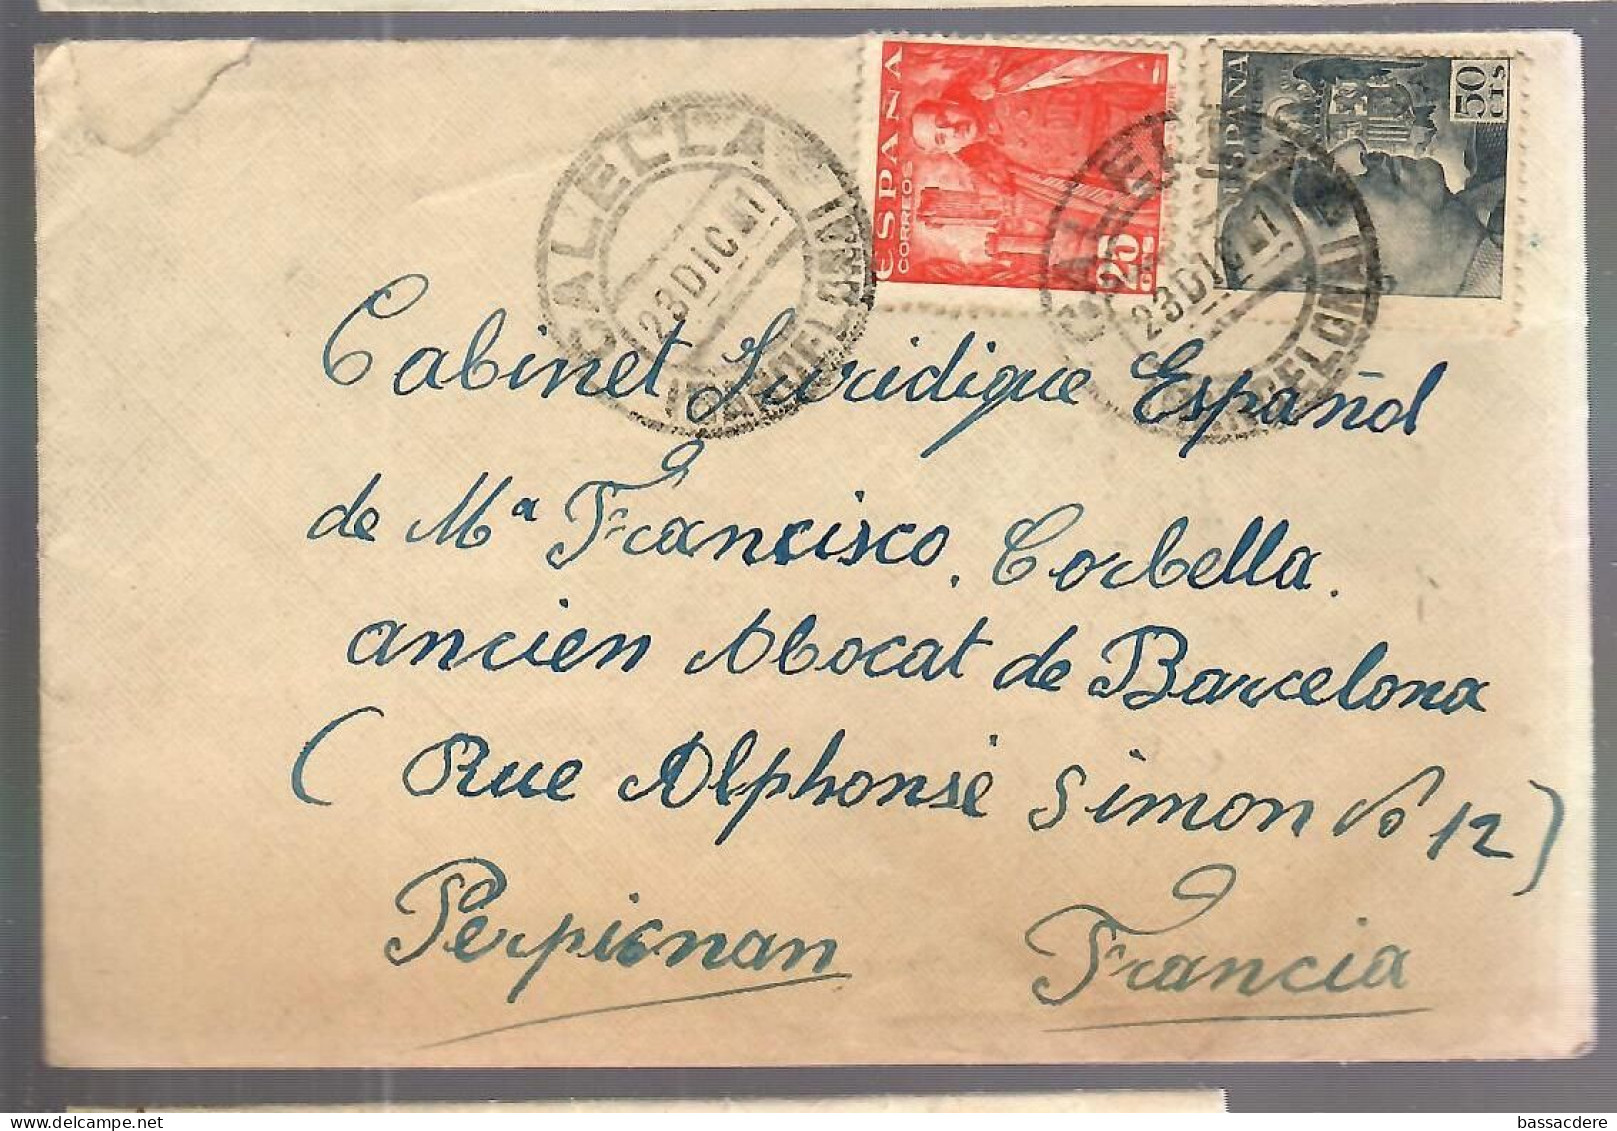 ESPAÑA
CORREOS
25
CTS
ESPAÑA
50
CTS
CALELLA
23 DIC
(BARCELONA)
CALELLA
23 DIC
BARCELONA
Cabinet Juridique Español
de Mª Francisco. Corbella.
ancien Abocat de Barcelona
(Rue Alphonse Simon Nº 12)
Perpignan Francia
bassacdere